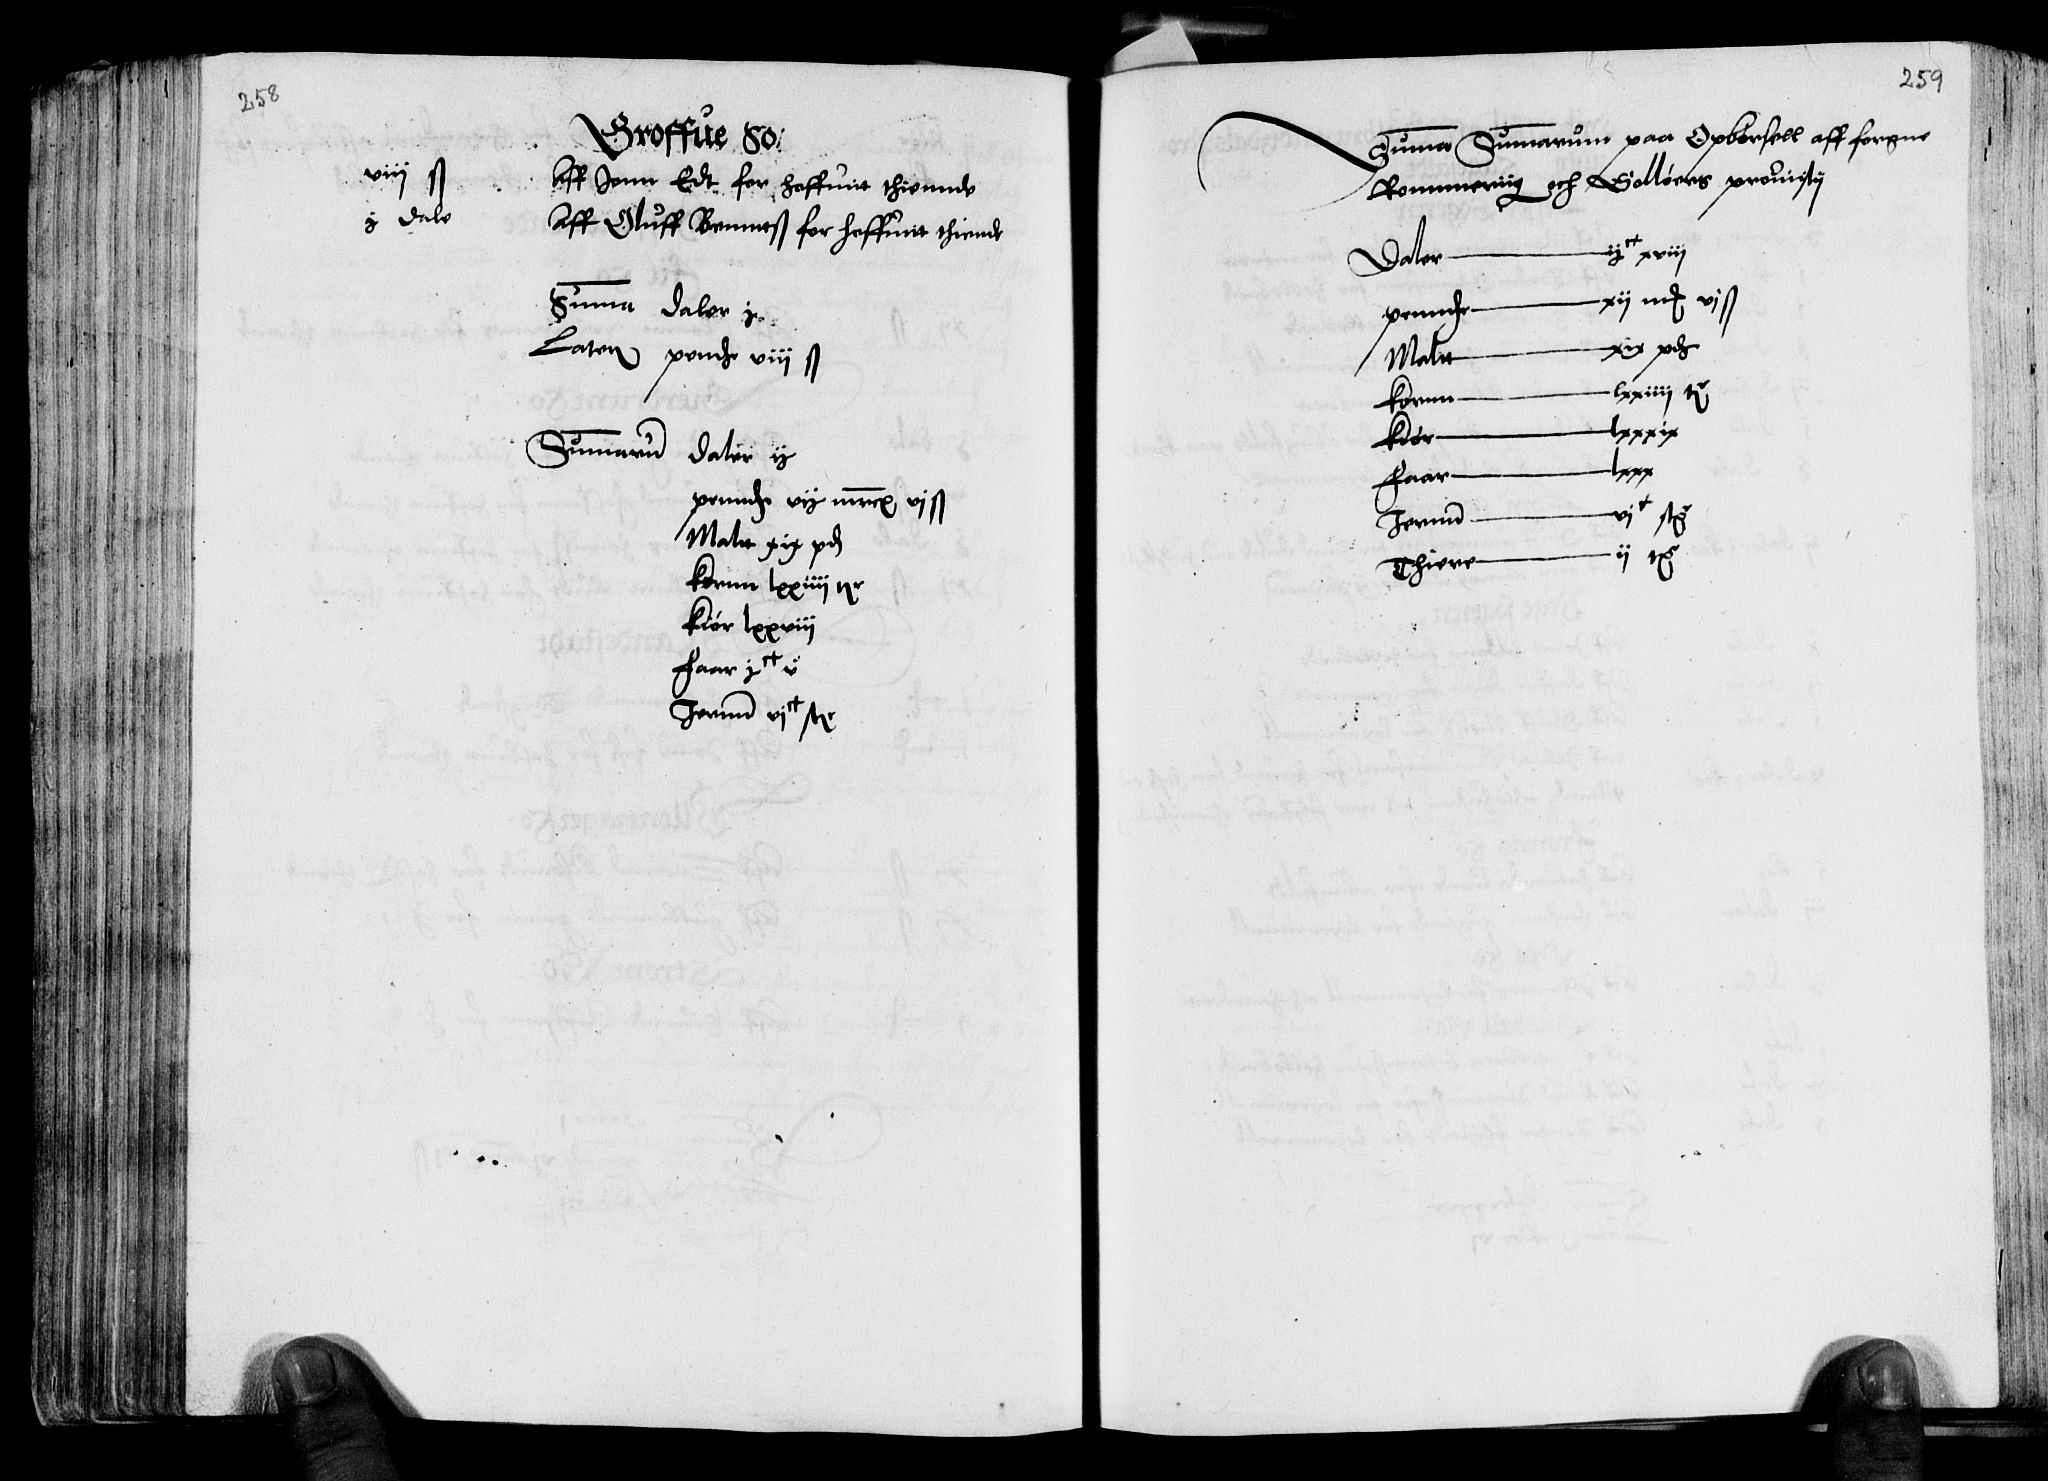 258
Groffue So:
viij ß Aff Jonn Edt for hoffuit thiennde
j dale Aff Oluff Benntß for hoffuit thiende
Summa daler j
Lateris pendge viij ß
Summarum Daler ij
penndge vij mrck vj ß
Malt xix pd
kornn lxxiiij tr
kiør lxxviij
Faar jct v
Jernn vjct str
259
Suma Sumarum paa Opbørsell aff forgne
Rommeriig och Solløers prouistij
Daler ijct xviij
penndge xij mk vj ß
Malt xix pd
kornn lxxiiij tr
kiør lxxxix
Faar lxxx
Jernn vjct str
Thiere ij tr